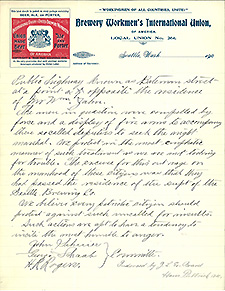 "WORKINGMEN OF ALL COUNTRIES, UNITE."
Brewery Workmen's International Union,
OF AMERICA.
LOCAL UNION No.
BEER, ALE, or PORTER,
Seattle, Wash. 190
Public highway known as Bateman street
at a point at or opposite the residence
of Mr Wm
The men in question were compelled by
force and a display of fire arms to accompany
these so called deputies to see the night
marshal. We protest in the most emphatic
manner of such treatment as we are not looking
for trouble. The excuse for this outrage on
the manhood of these citizens was that they
had passed the residence of the supt of the
Seattle Brewing Co.
We believe every patriotic citizen should
protest against such uncalled for insults.
Such actions are apt to have a tendency to
incite the most humble to anger.
John
Geo. Schaab Committee
Rogers